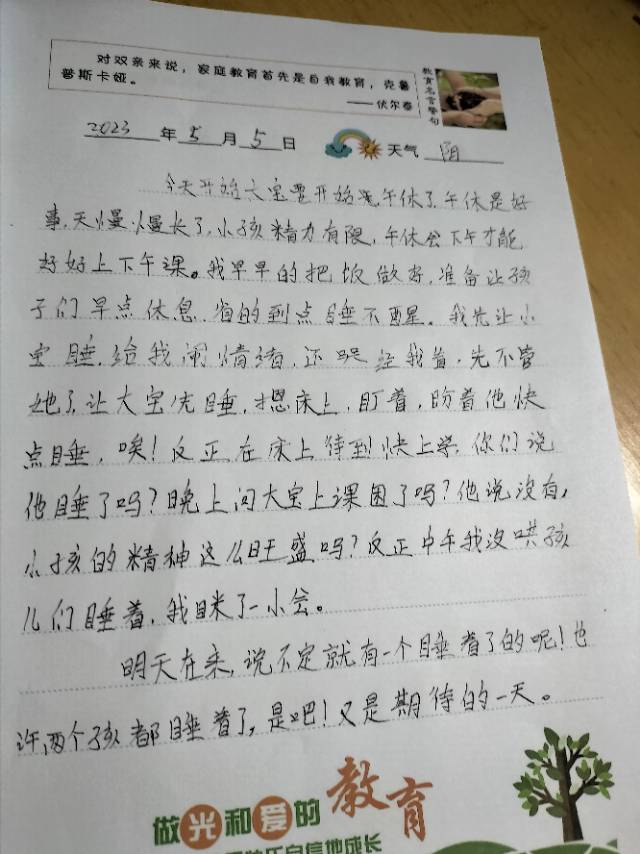 对双亲来说，家庭教育首先是自我教育，克鲁
普斯卡娅。
——伏尔泰
教育名言警句
2023 年 5 月 5 日 天气 阴
今天开始大宝要开始 午休了，午休是好
事，天慢慢长了，小孩精力有限，午休会下午才能
好好上下午课。我早早的把饭做好，准备让孩
子们早点休息，省的到点睡不醒。我先让小
宝睡，给我闹情绪，还哭 我 ，先不管
她了，让大宝先睡， 床上，盯着，盼着他快
点睡，唉！反正在床上待到快上学，你们说
他睡了吗？晚上问大宝上课困了吗？他说没有，
小孩的精神这么旺盛吗？反正中午我没哄孩
儿们睡着，我眯了一小会。
明天在来，说不定就有一个睡着了的呢！也
许两个孩都睡着了，是吧！又是期待的一天。
做光和爱的教育
自信地成长